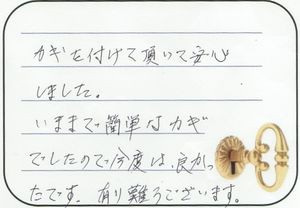 カギを付けて頂いて安心
しました。
いままで簡単なカギ
でしたので今度は、良かっ
たです。有り難うございます。